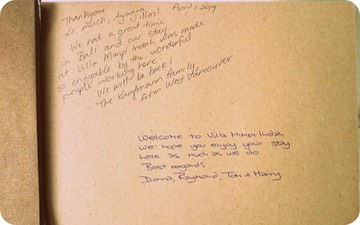 Thankyou April 1, 2014
We had a great time
in Bali and our stay
at Villa Mimpi Indah was made
so enjoyable by the wonderful
people working here
We will be back!
The Kaufmann Family
from West Vancouver
Welcome to Villa Mimpi Indah
We hope you enjoy your stay
here as much as we do
Best regards
David, Raymond, Tom & Harry